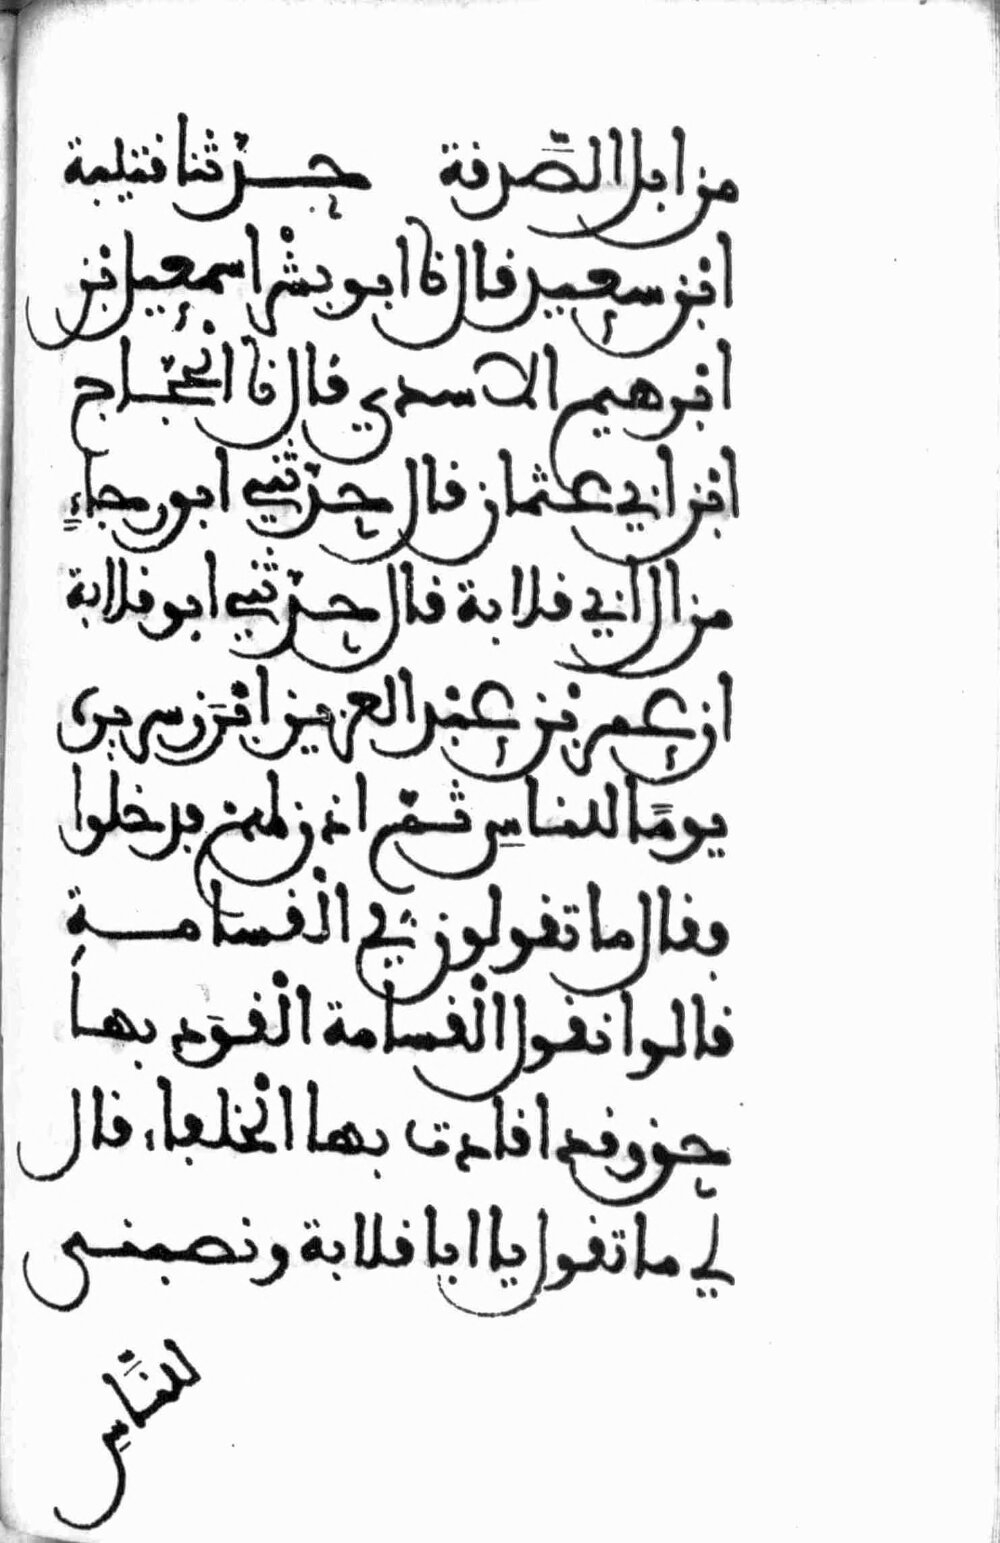 من ابل الصّدقة حدّثنا قتيبة
ابن سعيد قال نا ابو بشْر اسمعيل بن
ابرهيم الاسدي قال نا الْحجّاج
ابن ابي عثمان قال حدّثني ابو رجاءٍ
من ال ابي قلابة قال حدّثني ابو قلابة
ان عمر بن عبْد العزيز ابْرَز سريره
يومًا للناسِ ثمّ اذن لهم فدخلوا
فقال ما تقولون في الْقسَامة
قالوا نقول الْقسامة الْقوَد بها
حق وقد اقادت بها الْخلفاء قال
لي ما تقول يا ابا قلابة ونصبني
للنَّاسِ